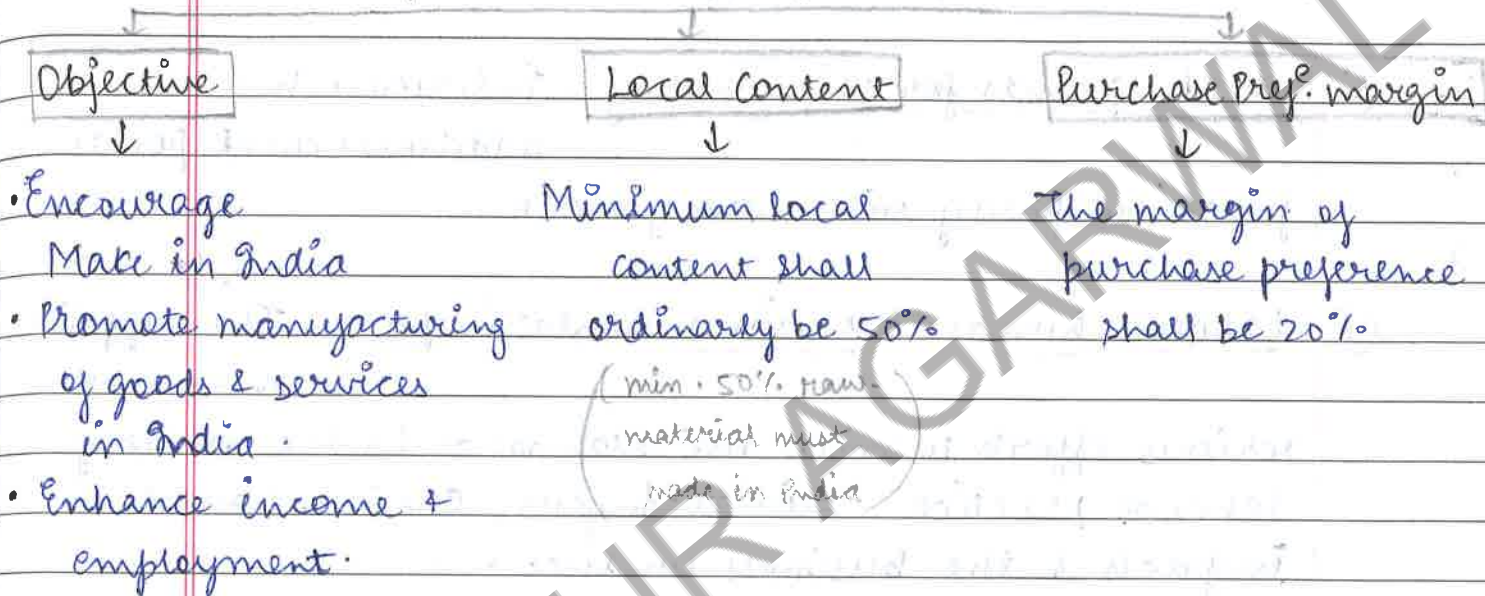 Objective
↓
• Encourage
Make in India
• Promote manufacturing
of goods & services
in India.
• Enhance income &
employment.
Local Content
↓
Minimum local
content shall
ordinarly be 50%
(min. 50% raw
material must
made in India)
Purchase Prefe. margin
↓
The margin of
purchase preference
shall be 20%
UR AGARWAL